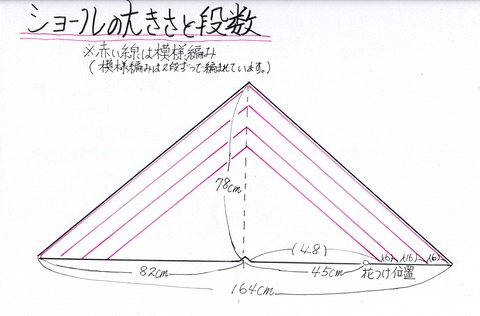 ショールの大きさと段数
※赤い線は模様編み
(模様編みは2段ずつで編まれています。)
78cm
(48)
(6) (16) (6)
82cm
45cm
花つけ位置
164cm